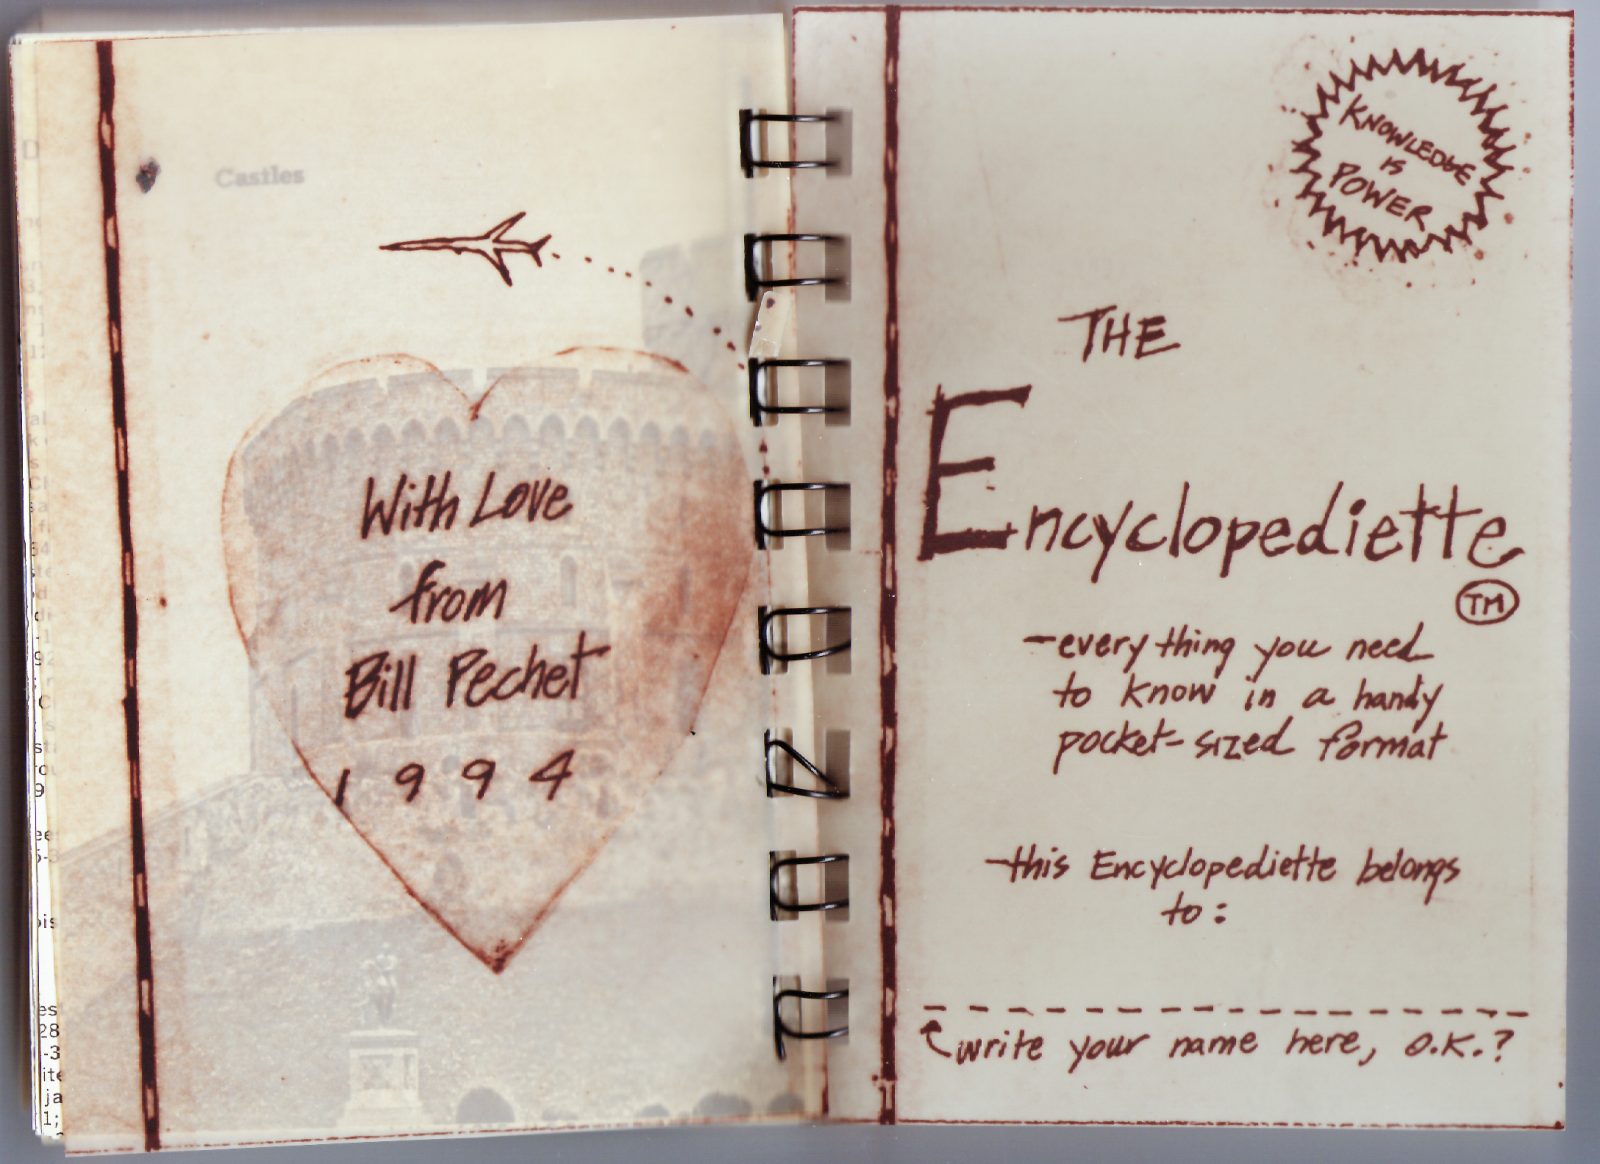 Castles
With Love
from
Bill Pechet
1994
KNOWLEDGE
IS
POWER
THE
Encyclopediette
TM
-everything you need
to know in a handy
pocket-sized format
-this Encyclopediette belongs
to:
write your name here, O.K.?